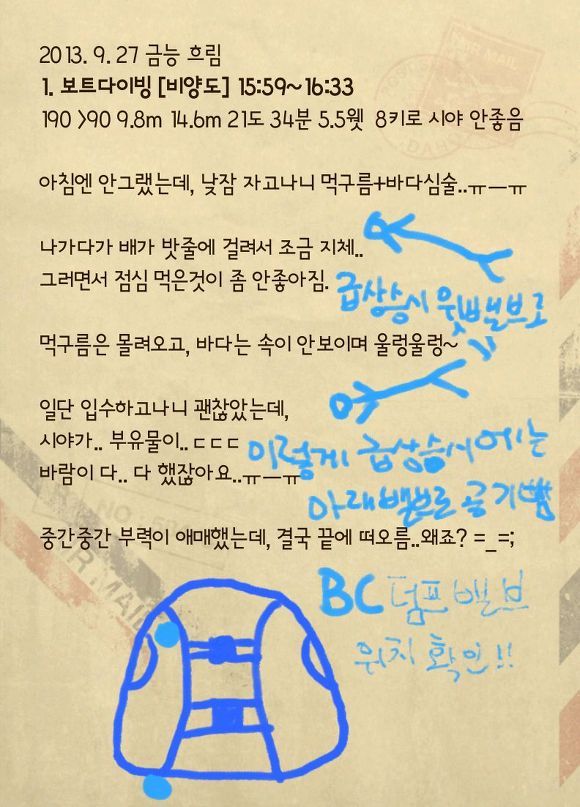 2013. 9. 27 금능 흐림
1. 보트다이빙 [비양도] 15:59~16:33
190 >90 9.8m 14.6m 21도 34분 5.5웻 8키로 시야 안좋음
아침엔 안그랬는데, 낮잠 자고나니 먹구름+바다심술..ㅠㅡㅠ
나가다가 배가 밧줄에 걸려서 조금 지체..
그러면서 점심 먹은것이 좀 안좋아짐.
급상승시 윗밸브로
먹구름은 몰려오고, 바다는 속이 안보이며 울렁울렁~
일단 입수하고나니 괜찮았는데,
시야가.. 부유물이..ㄷㄷㄷ
바람이 다.. 다 했잖아요..ㅠㅡㅠ
이렇게 급상승시에는
아래밸브로 공기뺌
중간중간 부력이 애매했는데, 결국 끝에 떠오름..왜죠? =_=;
BC 덤프밸브
위치 확인!!